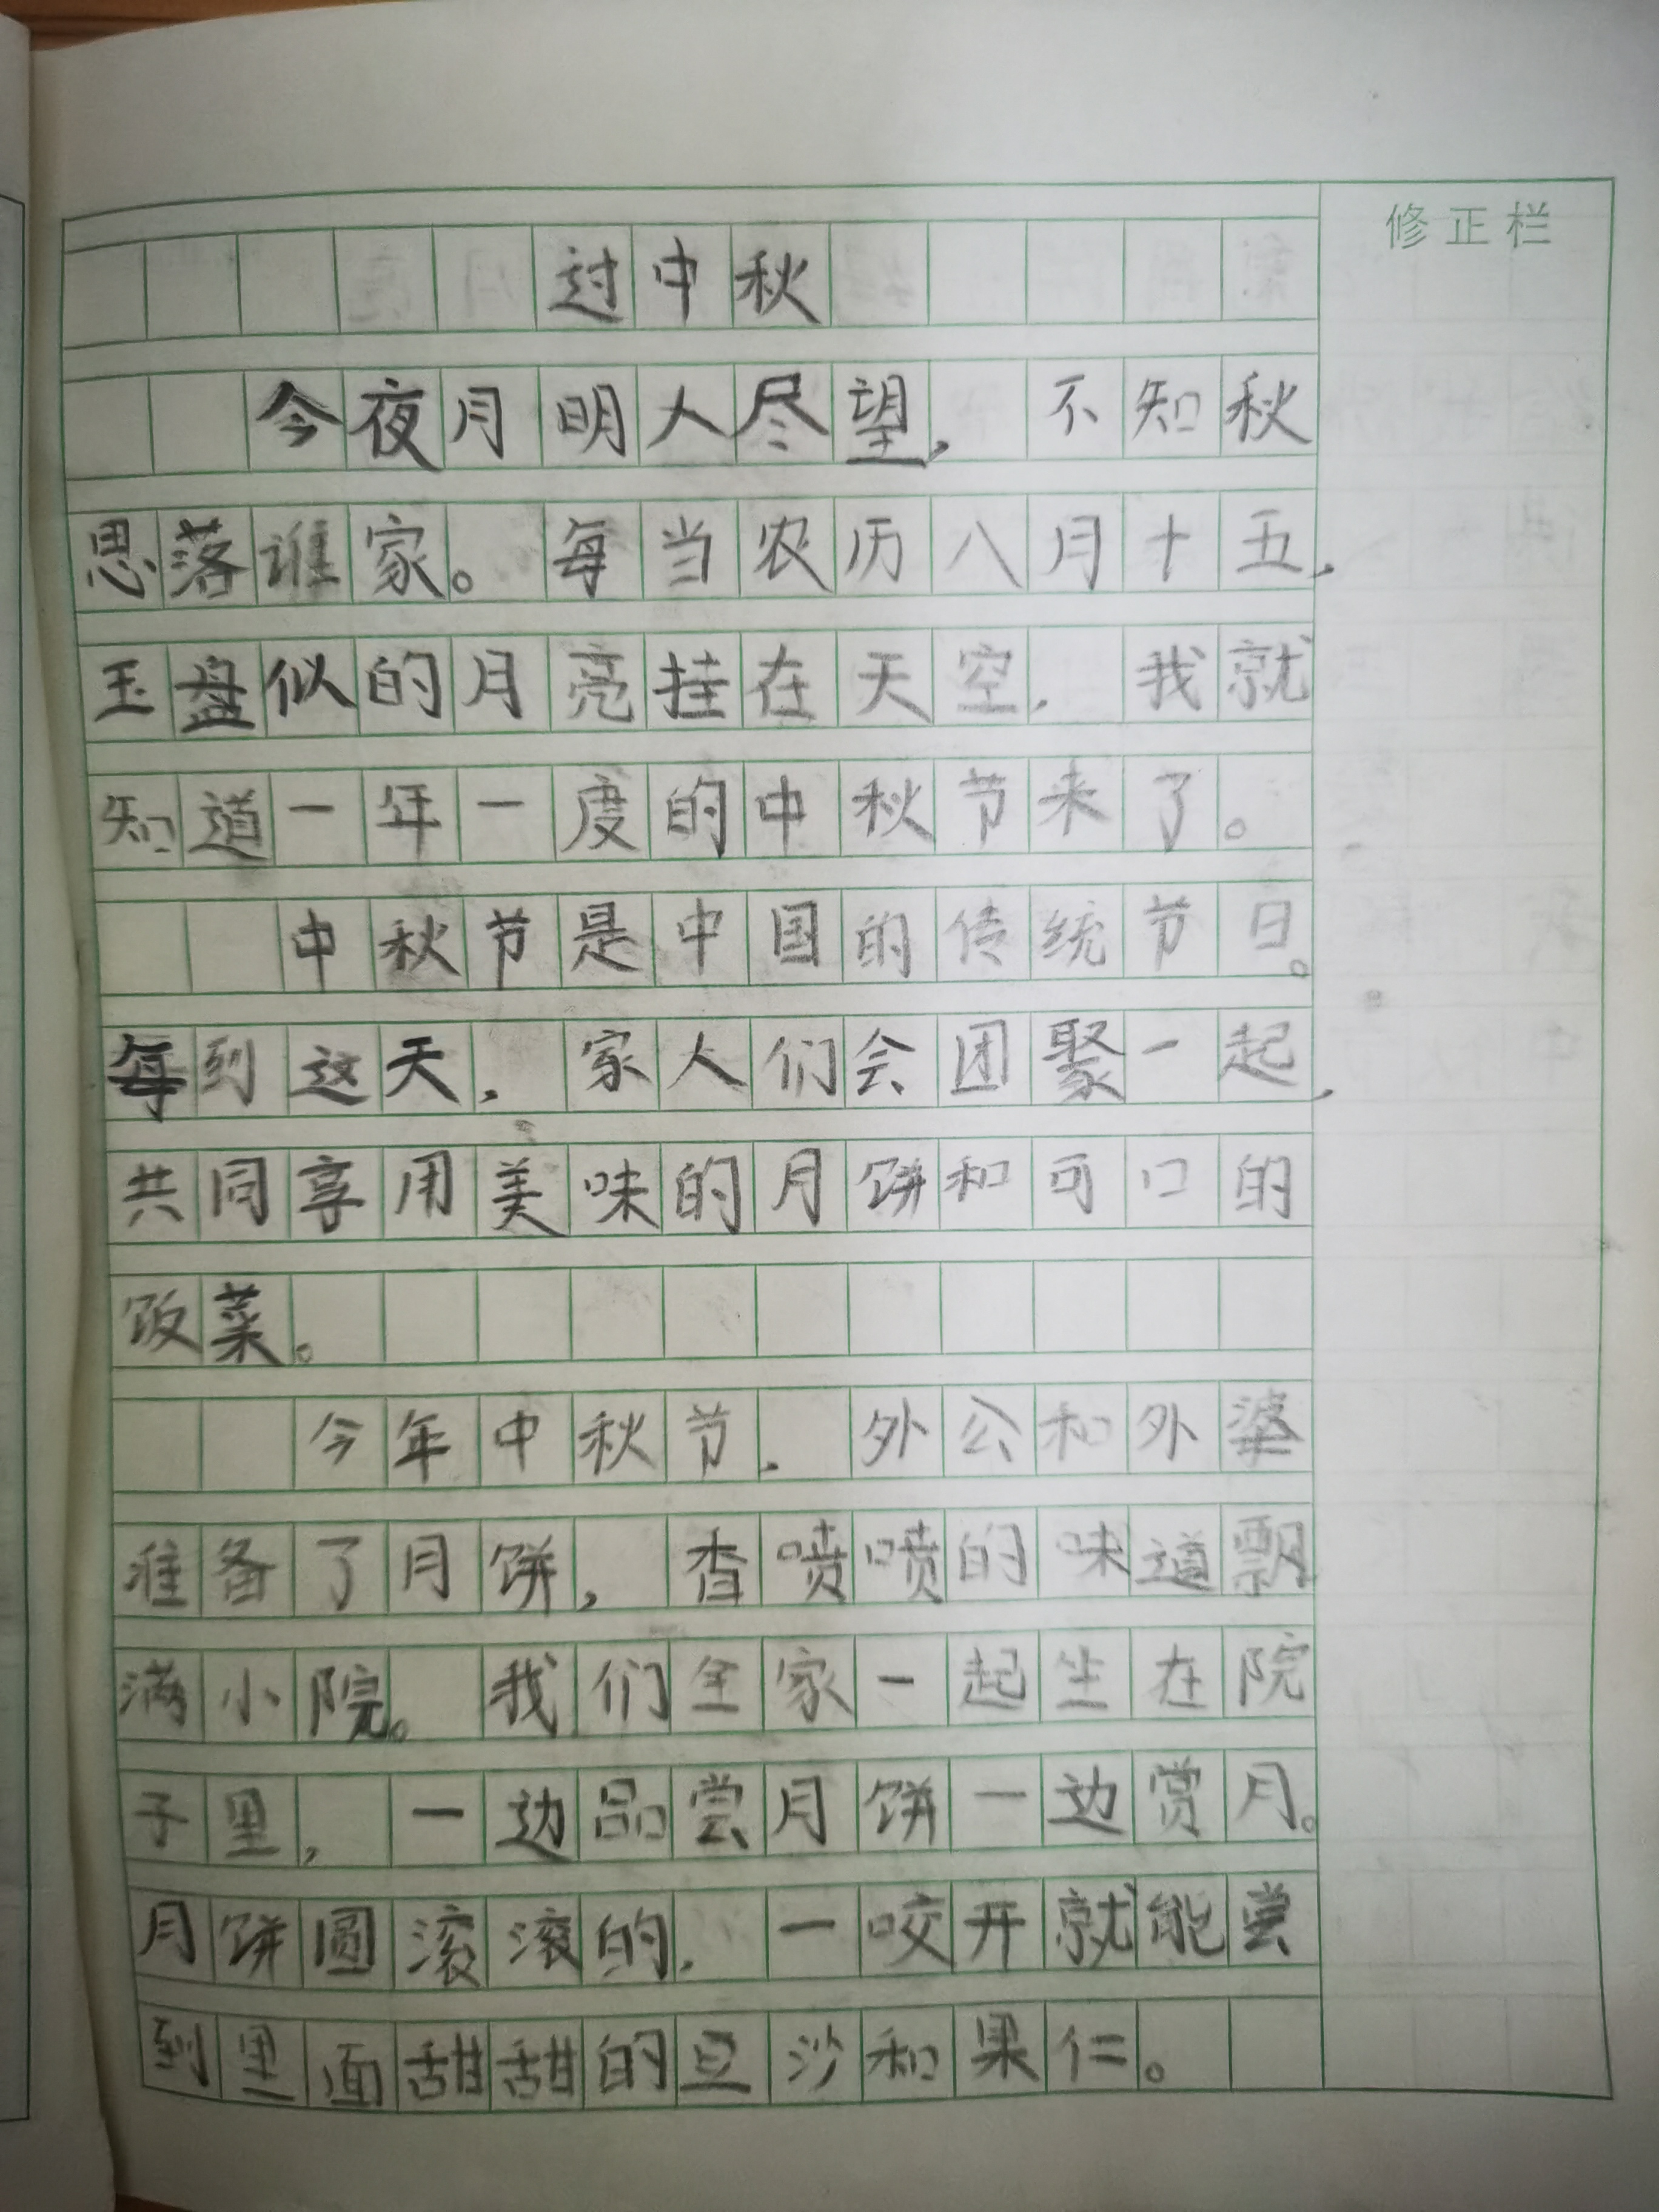 修正栏
过中秋
今夜月明人尽望,不知秋
思落谁家。每当农历八月十五,
玉盘似的月亮挂在天空,我就
知道一年一度的中秋节来了。
中秋节是中国的传统节日。
每到这天,家人们会团聚一起,
共同享用美味的月饼和可口的
饭菜。
今年中秋节,外公和外婆
准备了月饼,香喷喷的味道飘
满小院。我们全家一起坐在院
子里,一边品尝月饼一边赏月。
月饼圆滚滚的,一咬开就能尝
到里面甜甜的豆沙和果仁。